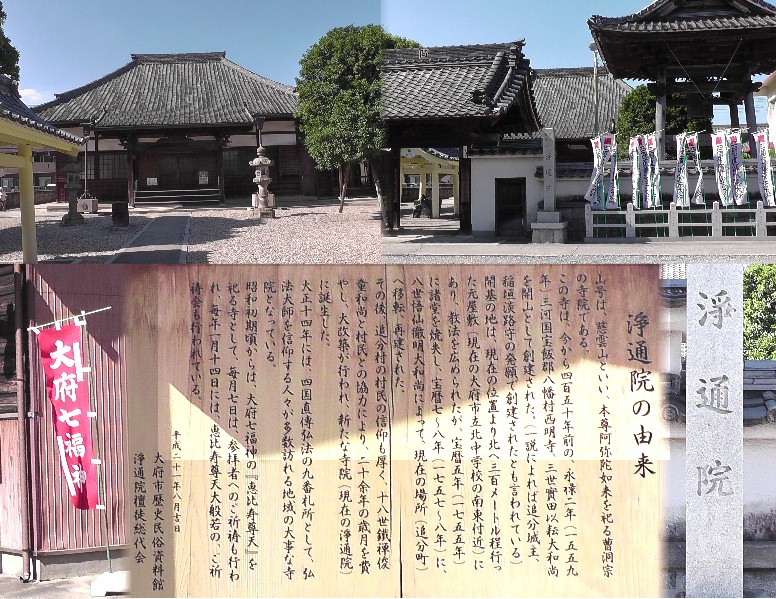 浄通院の由来
山号は、慈雲山といい、本尊阿弥陀如来を祀る曹洞宗
の寺院である。
この寺は、今から四百五十年前の、永禄二年(一五五九
年)三河国宝飯郡八幡村西明寺、三世實田以耘大和尚
を開山として創建された。(一説によれば追分城主、
稲垣淡路守の発願で創建されたとも言われている)
開基の地は、現在の位置より北へ三百メートル程行っ
た元屋敷(現在の大府市立北中学校の南東付近)に
あり、教法を広められたが、宝暦五年(一七五五年)
に諸堂を焼失し、宝暦七～八年(一七五七～八年)に、
八世悟山徹明大和尚によって、現在の場所(追分町)
へ移転、再建された。
その後、追分村の村民の信仰も厚く、十八世鐵禅俊
童和尚と村民との協力により、二十余年の歳月を費
やし、大改築が行われ、新たな寺院(現在の浄通院)
に誕生した。
大正十四年には、四国直傳弘法の九番札所として、弘
法大師を信仰する人々が多数訪れる地域の大事な寺
院となっている。
昭和初期頃からは、大府七福神の『恵比寿尊天』を
祀る寺として、毎月七日は、参拝者へのご祈祷も行わ
れ、毎年一月十四日には、恵比寿尊天大般若の、ご祈
祷会も行われている。
平成二十一年八月吉日
大府市歴史民俗資料館
浄通院檀徒総代会
大府七福神
淨通院
淨通院